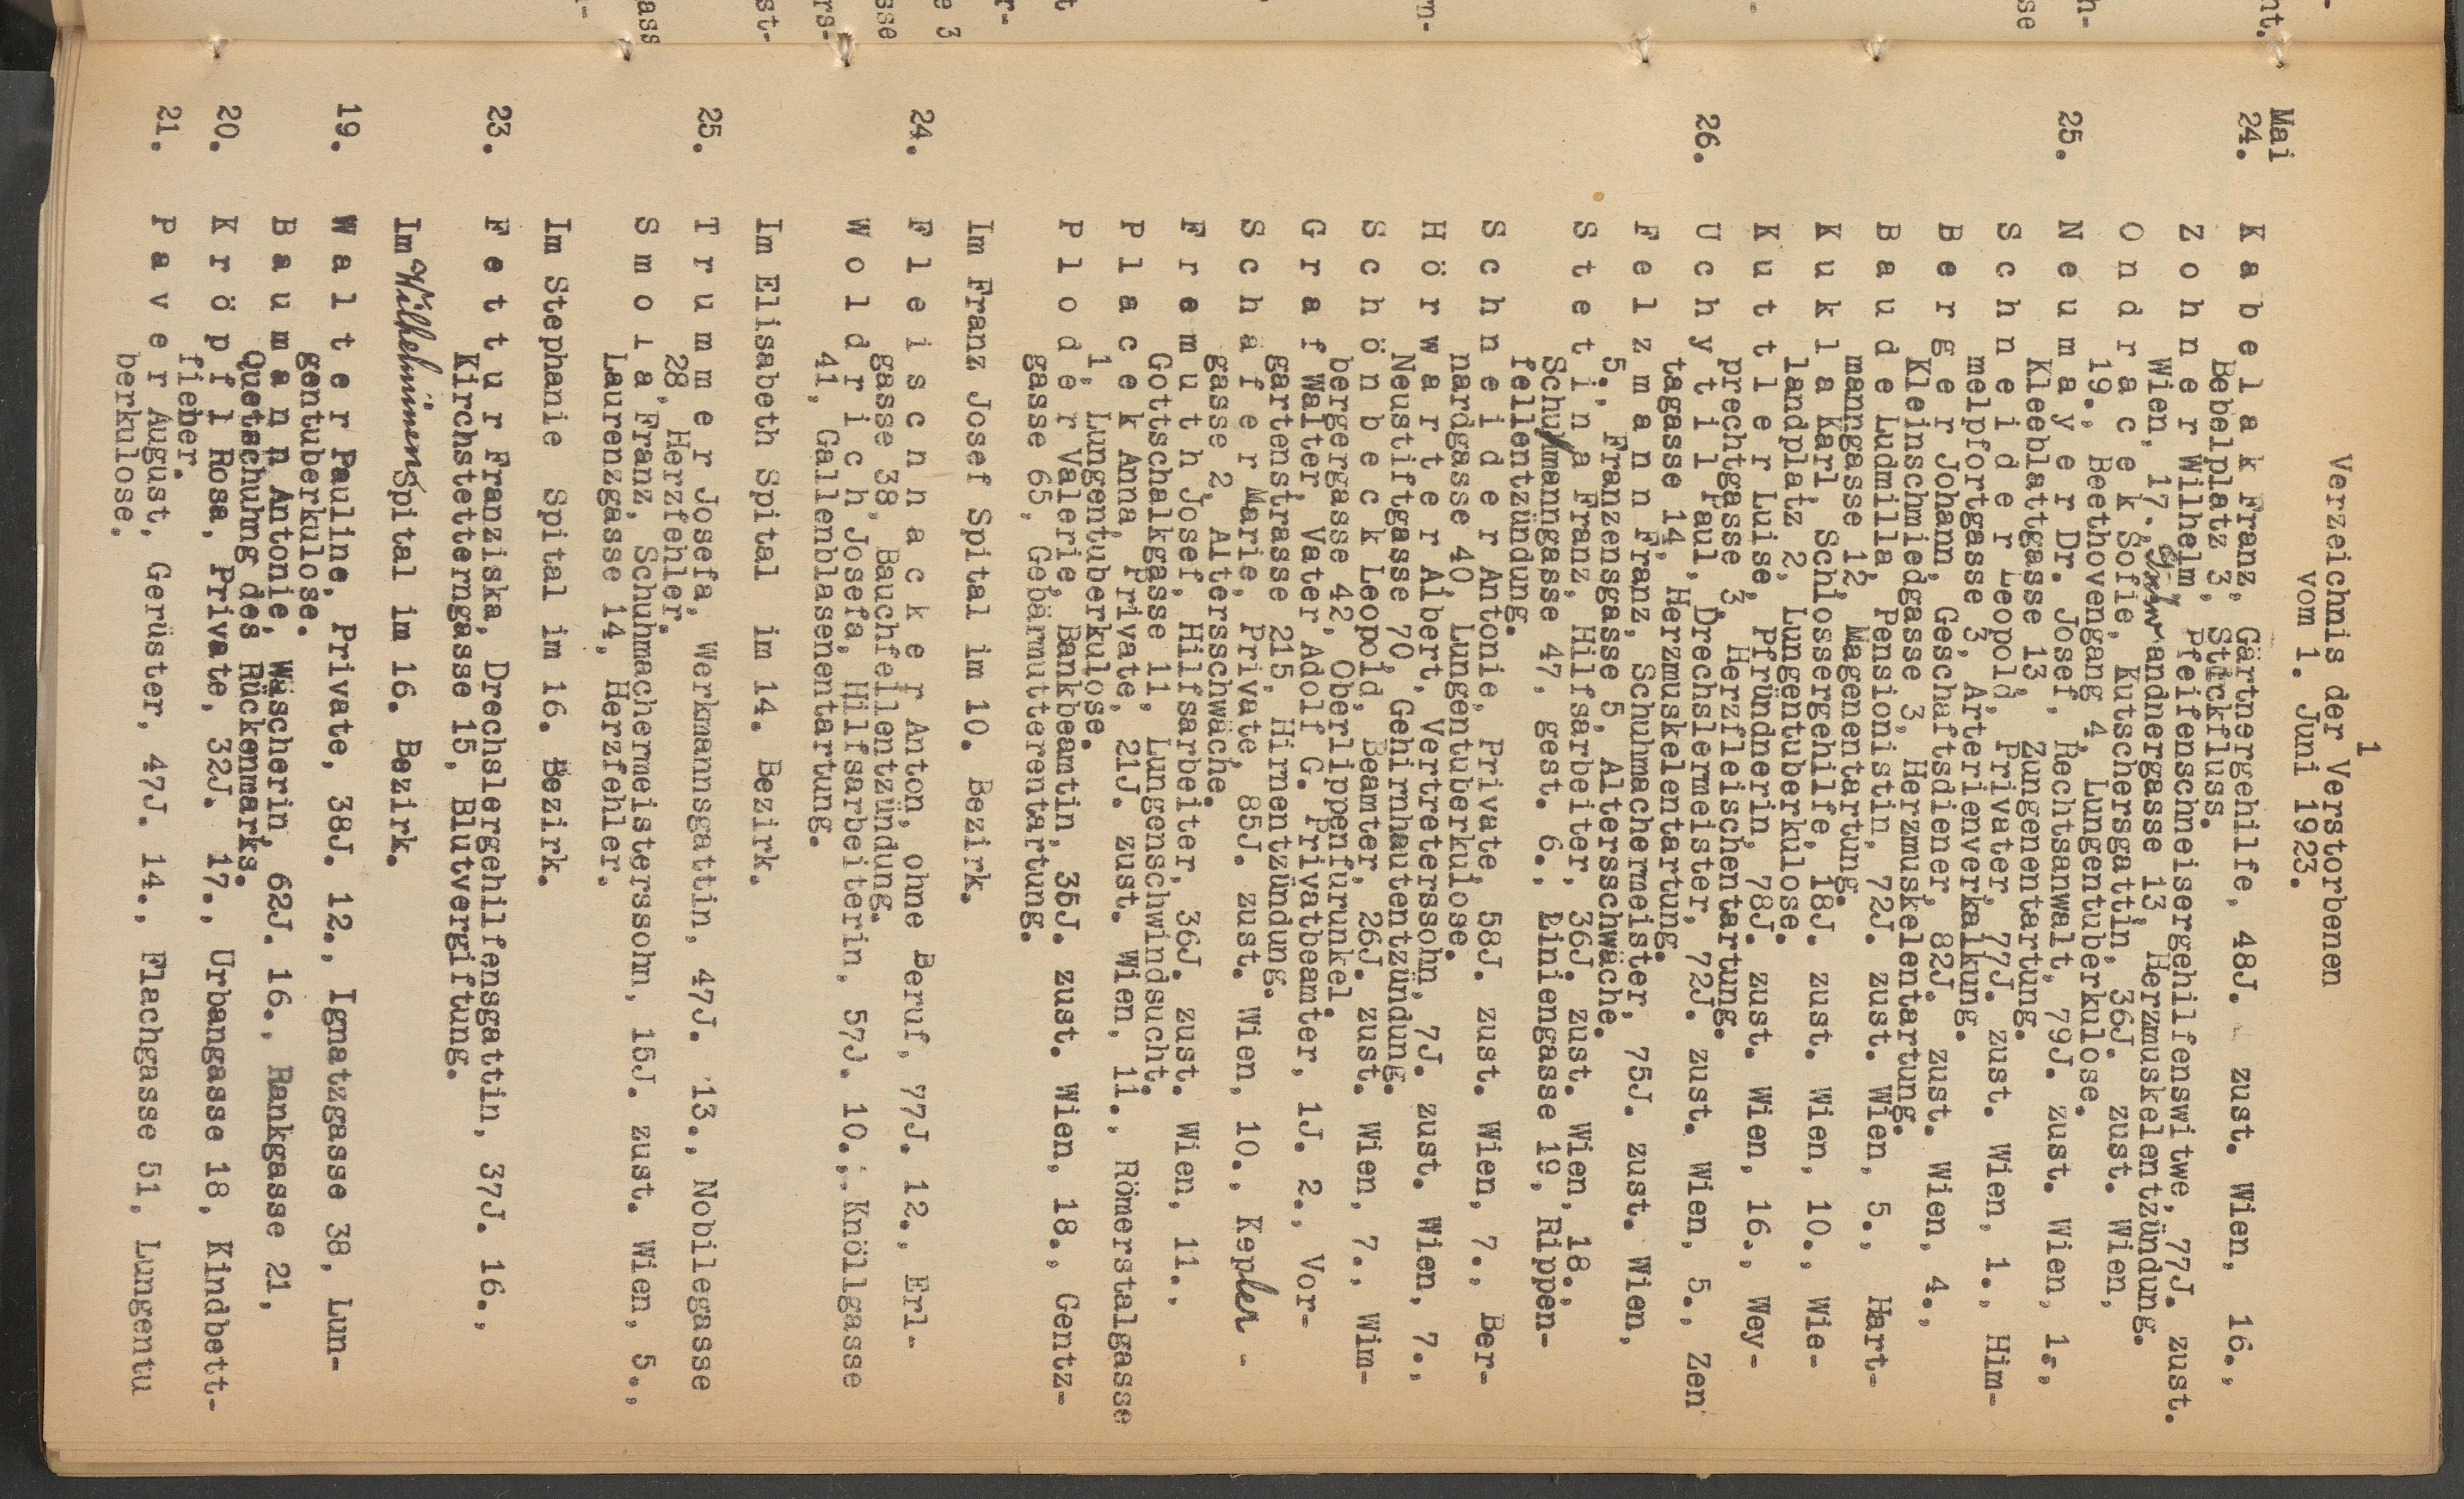 1
Verzeichnis der Verstorbenen
vom 1. Juni 1923.
Mai
24. K a b e l a k Franz, Gärtnergehilfe, 48J. zust. Wien, 16.,
Bebelplatz 3, Stickfluss.
Z o h n e r Wilhelm, Pfeifenschneisergehilfenswitwe, 77J. zust.
Wien, 17., andnergasse 13, Herzmuskelentzündung.
O n d r a c e k Sofie, Kutschersgattin, 36J. zust. Wien,
19., Beethovengang 4, Lungentuberkulose.
25. N e u m a y e r Dr. Josef, Rechtsanwalt, 79J. zust. Wien, 1.,
Kleeblattgasse 13, Zungenentartung.
S c h n e i d e r Leopold, Privater, 77J. zust. Wien, 1., Him-
melpfortgasse 3, Arterienverkalkung.
B e r g e r Johann, Geschaftsdiener, 82J. zust. Wien, 4.,
Kleinschmiedgasse 3, Herzmuskelentartung.
B a u d e Ludmilla, Pensionistin, 72J. zust. Wien, 5., Hart-
manngasse 12, Magenentartung.
K u k l a Karl, Schlossergehilfe, 18J. zust. Wien, 10., Wie-
landplatz 2, Lungentuberkulose.
K u t t l e r Luise, Pfründnerin, 78J. zust. Wien, 16., Wey-
prechtgasse 3, Herzfleischentartung.
26. U c h y t i l Paul, Drechslermeister, 72J. zust. Wien, 5., Zen
tagasse 14, Herzmuskelentartung.
F e l z m a n n Franz, Schuhmachermeister, 75J. zust. Wien,
5., Franzensgasse 5, Altersschwäche.
S t e t i n a Franz, Hilfsarbeiter, 36J. zust. Wien, 18.,
Schumanngasse 47, gest. 6., Liniengasse 19, Rippen-
fellentzündung.
S c h n e i d e r Antonie, Private, 58J. zust. Wien, 7., Ber-
nardgasse 40, Lungentuberkulose.
H ö r w a r t e r Albert, Vertreterssohn, 7J. zust. Wien, 7.,
Neustiftgasse 70, Gehirnhautentzündung.
S c h ö n b e c k Leopold, Beamter, 26J. zust. Wien, 7., Wim-
bergergasse 42, Oberlippenfurunkel.
G r a f Walter, Vater Adolf G. Privatbeamter, 1J. 2., Vor-
gartenstrasse 215, Hirnentzündung.
S c h ä f e r Marie, Private, 85J. zust. Wien, 10., Kepler -
gasse 2, Altersschwäche.
F r e m u t h Josef, Hilfsarbeiter, 36J. zust. Wien, 11.,
Gottschalkgasse 11, Lungenschwindsucht.
P l a c e k Anna, Private, 21J. zust. Wien, 11., Römerstalgasse
1, Lungentuberkulose.
P l o d e r Valerie, Bankbeamtin, 35J. zust. Wien, 18., Gentz-
gasse 65, Gebärmutterentartung.
Im Franz Josef Spital im 10. Bezirk.
24. F l e i s c h h a c k e r Anton, ohne Beruf, 77J. 12., Erl-
gasse 38, Bauchfellentzündung.
W o l d r i c h Josefa, Hilfsarbeiterin, 57J. 10., Knöllgasse
41, Gallenblasenentartung.
Im Elisabeth Spital im 14. Bezirk.
25. T r u m m e r Josefa, Werkmannsgattin, 47J. 13., Nobilegasse
28, Herzfehler.
S m o l a Franz, Schuhmachermeisterssohn, 15J. zust. Wien, 5.,
Laurenzgasse 14, Herzfehler.
Im Stephanie Spital im 16. Bezirk.
23. F e t t u r Franziska, Drechslergehilfensgattin, 37J. 16.,
Kirchstetterngasse 15, Blutvergiftung.
Im Wilhelminen Spital im 16. Bezirk.
19. W a l t e r Pauline, Private, 38J. 12., Ignatzgasse 38, Lun-
gentuberkulose.
B a u m a n n Antonie, Wäscherin, 62J. 16., Rankgasse 21,
Quetschuhng des Rückenmarks.
20. K r ö p f l Rosa, Private, 32J. 17., Urbangasse 18, Kindbett-
fieber.
21. P a v e r August, Gerüster, 47J. 14., Flachgasse 51, Lungentu
berkulose.